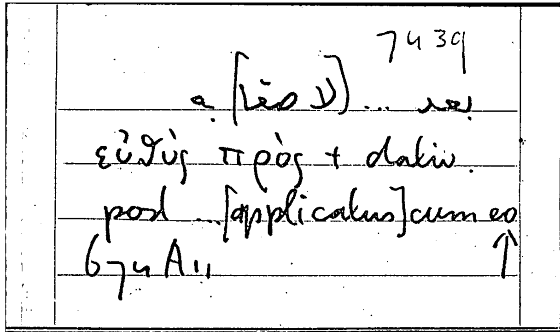 7439
εὐθὺς πρὸς + dativ.
post ...[applicatus] cum eo
674 A 11 ↑